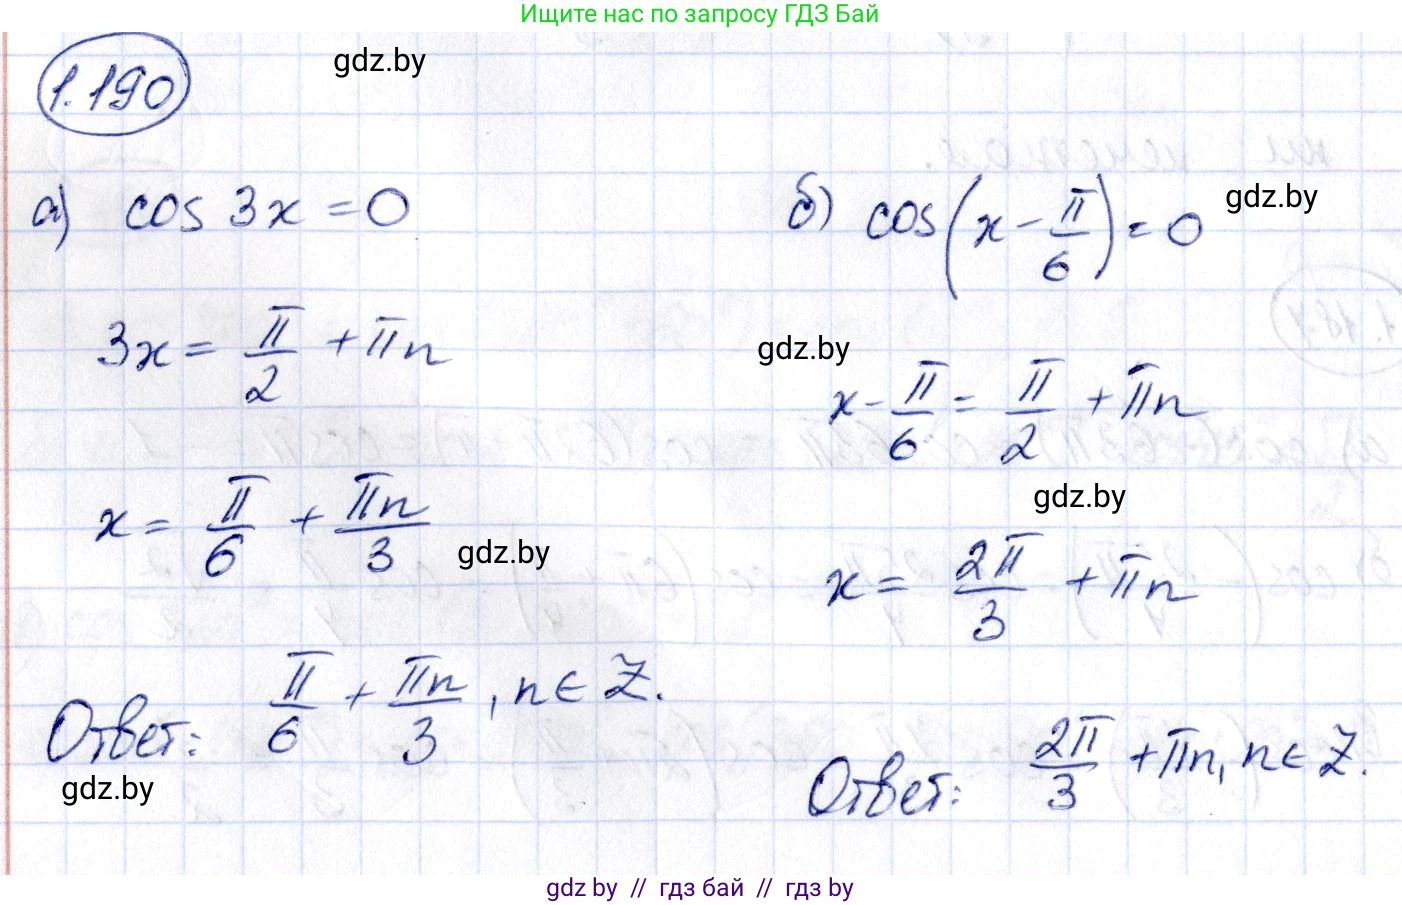 Ищите нас по запросу ГДЗ Бай
1.190
gdz.by
а) cos 3x = 0
3x = π/2 + πn
x = π/6 + πn/3
gdz.by
Ответ: π/6 + πn/3, n ∈ Z.
gdz.by
б) cos(x - π/6) = 0
gdz.by
gdz.by
x - π/6 = π/2 + πn
gdz.by
x = 2π/3 + πn
Ответ: 2π/3 + πn, n ∈ Z.
gdz by // гдз бай // гдз by